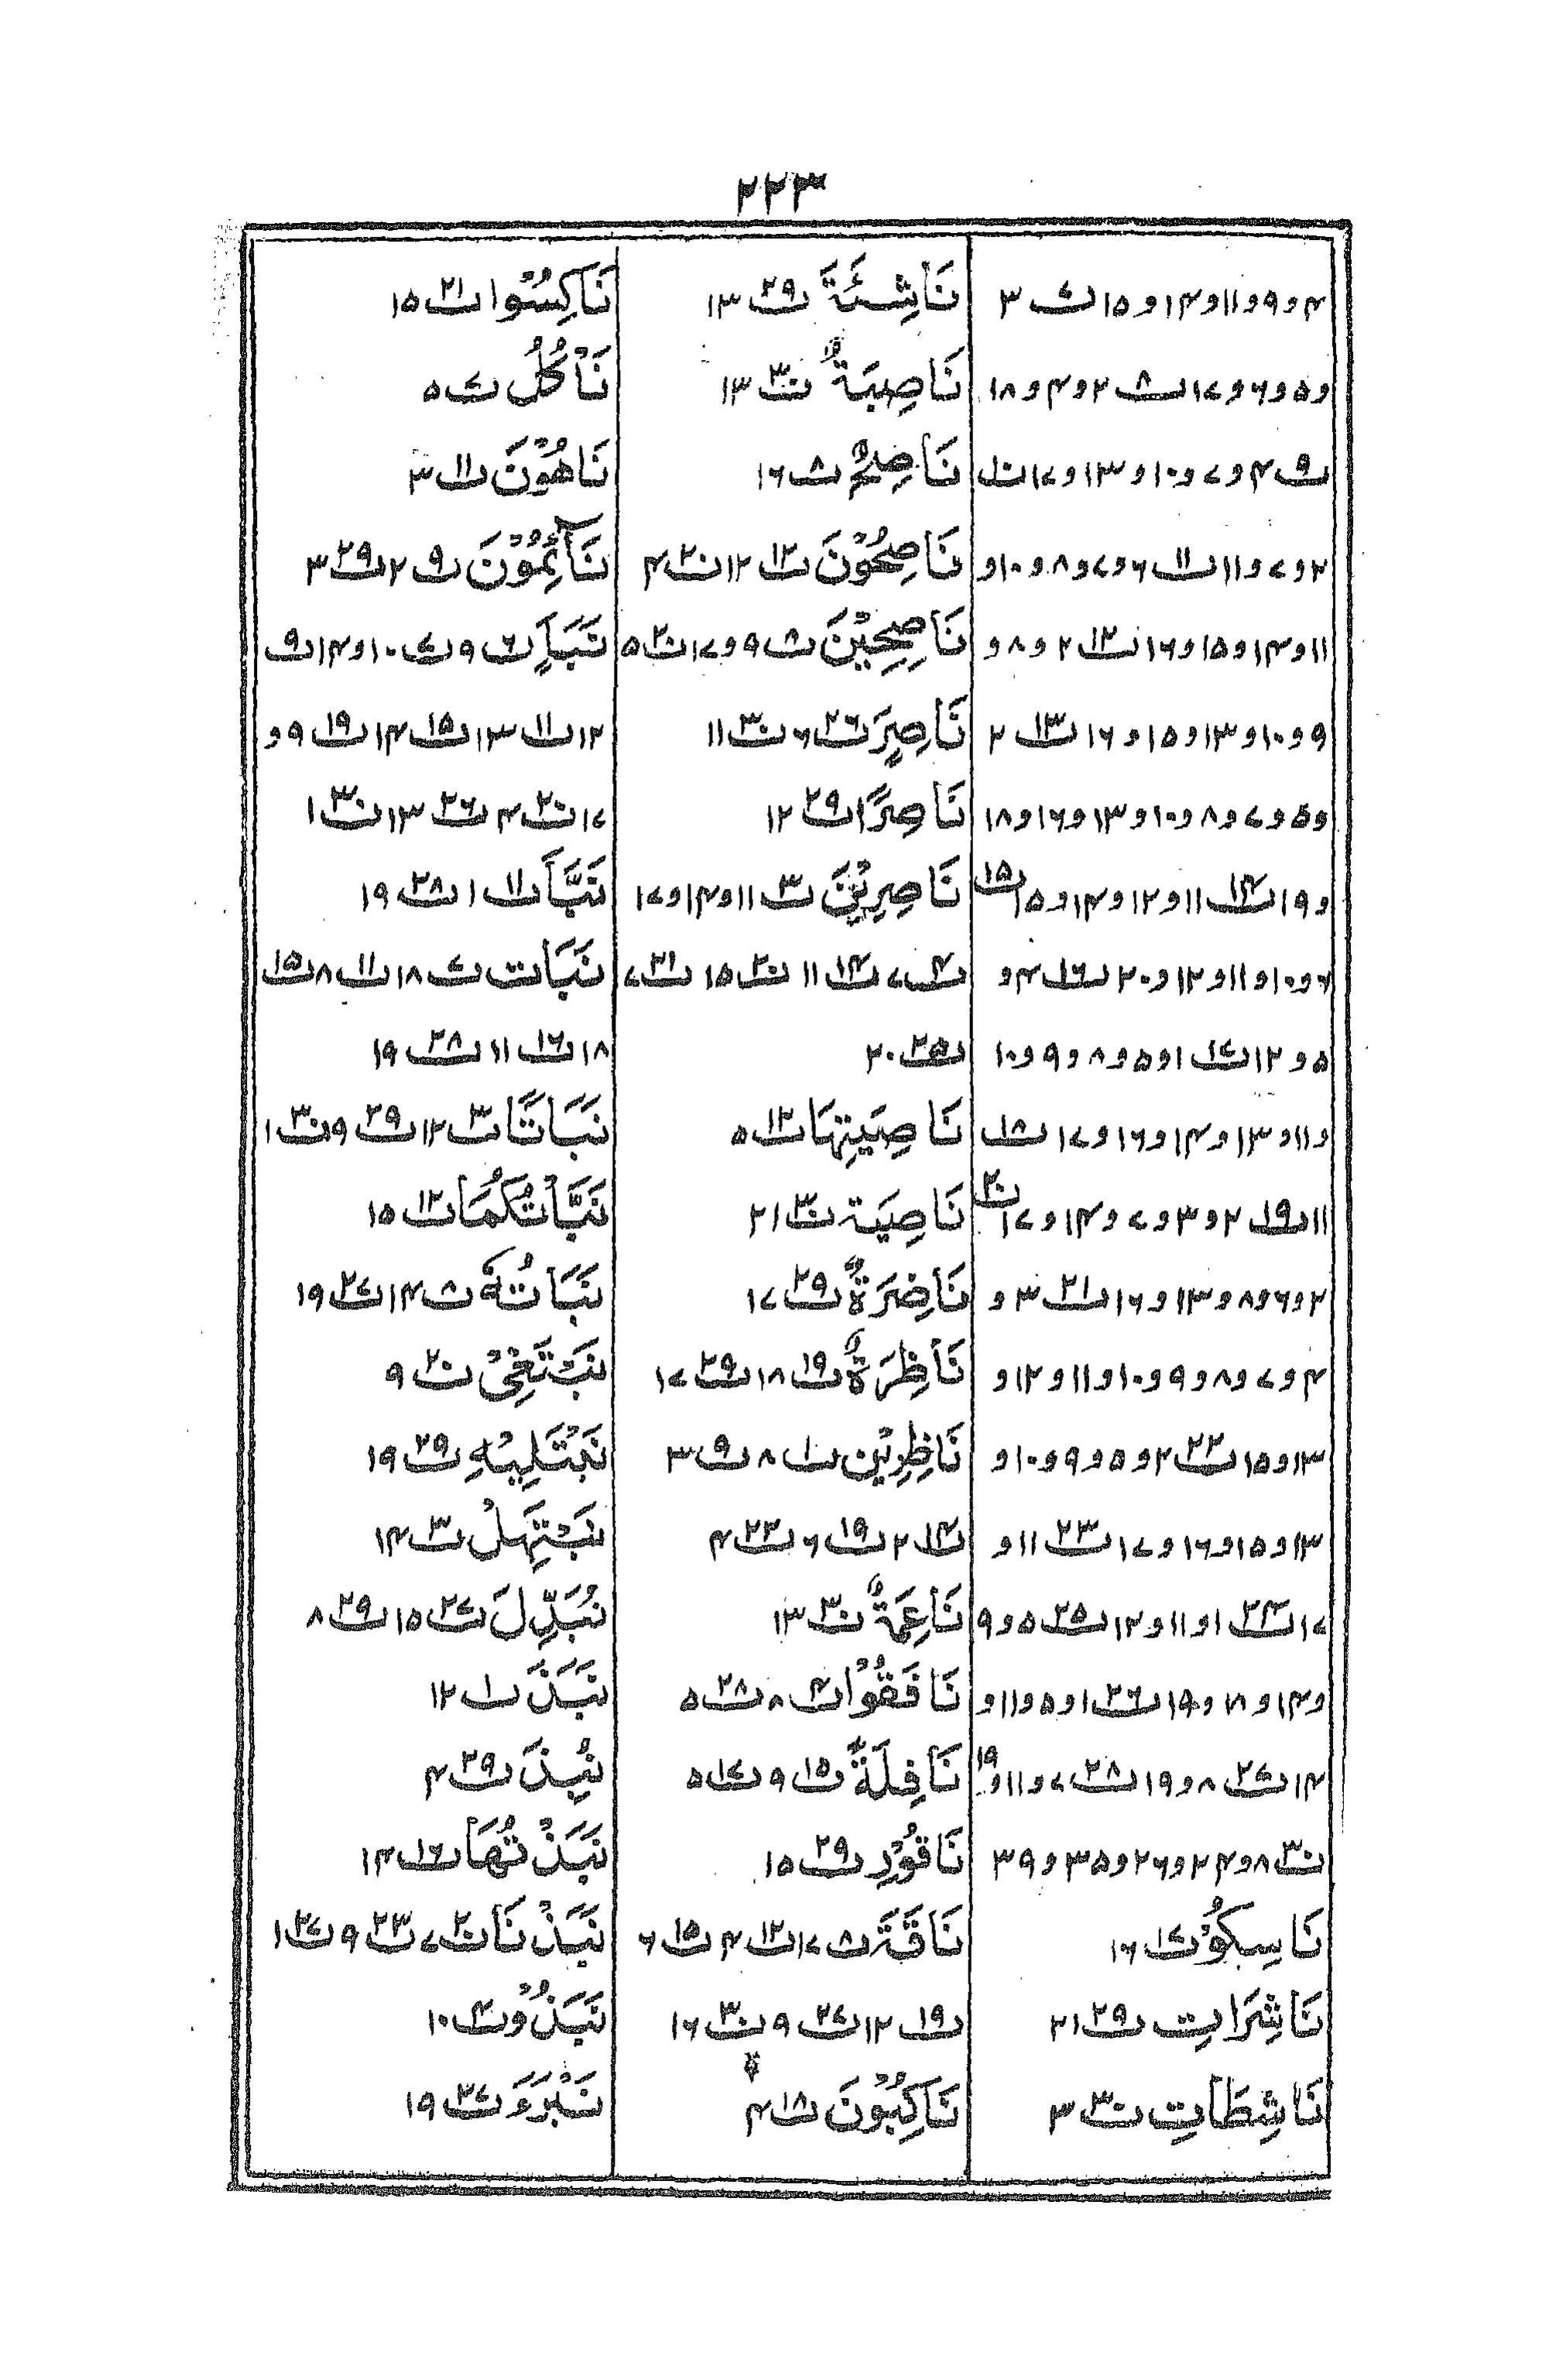 ۲۲۳
۴ و ۹ و ۱۱ و ۱۴ و ۱۵ ت۷ ۳
و ۵ و ۶ و ۱۷ ت۸ ۲ و ۴ و ۱۸
ت۹ ۴ و ۷ و ۱۰ و ۱۳ و ۱۷ ت۱۰
۲ و ۷ و ۱۱ ت۱۱ ۶ و ۷ و ۸ و ۱۰ و
۱۱ و ۱۴ و ۱۵ و ۱۶ ت۱۲ ۲ و ۸ و
۹ و ۱۰ و ۱۳ و ۱۵ و ۱۶ ت۱۳ ۲
و ۵ و ۷ و ۸ و ۱۰ و ۱۳ و ۱۶ و ۱۸
و ۱۹ ت۱۴ ۱۱ و ۱۲ و ۱۴ و ۱۵ ت۱۵
۶ و ۱۰ و ۱۱ و ۱۲ و ۲۰ ت۱۶ ۴ و
۵ و ۱۲ ت۱۷ ۱ و ۵ و ۸ و ۹ و ۱۰
و ۱۱ و ۱۳ و ۱۴ و ۱۶ و ۱۷ ت۱۸
۱۱ ت۱۹ ۲ و ۳ و ۷ و ۱۴ و ۱۷ ت۲۰
۲ و ۶ و ۸ و ۱۳ و ۱۶ ت۲۱ ۳ و
۴ و ۷ و ۸ و ۹ و ۱۰ و ۱۱ و ۱۲ و
۱۳ و ۱۵ ت۲۲ ۲ و ۵ و ۹ و ۱۰ و
۱۳ و ۱۵ و ۱۶ و ۱۷ ت۲۳ ۱۱ و
۱۷ ت۲۴ ۱ و ۱۱ و ۱۲ ت۲۵ ۵ و ۹
و ۱۴ و ۱۸ و ۱۹ ت۲۶ ۱ و ۵ و ۱۱ و
۱۴ ت۲۷ ۸ و ۱۹ ت۲۸ ۷ و ۱۱ و ۱۹
ت۳۰ ۸ و ۲۴ و ۲۶ و ۳۵ و ۳۹
نَاسِكُوْ ت۱۷ ۱۶
نَاشِرَاتِ ت۲۹ ۲۱
نَاشِطَاتِ ت۳۰ ۳
نَاشِئَةَ ت۲۹ ۱۳
نَاصِبَةٌ ت۳۰ ۱۳
نَاصِحٌ ت۸ ۱۶
نَاصِحُوْنَ ت۱۲ ۱۲ ت۲۰ ۴
نَاصِحِيْنَ ت۸ ۹ و ۱۷ ت۲۰ ۵
نَاصِرَ ت۲۶ ۶ ت۳۰ ۱۱
نَاصِرًا ت۲۹ ۱۲
نَاصِرِيْنَ ت۳ ۱۱ و ۱۴ و ۱۷
ت۴ ۷ ت۱۴ ۱۱ ت۲۰ ۱۵ ت۲۱ ۷
ت۲۵ ۲۰
نَاصِيَتِهَا ت۱۲ ۵
نَاصِيَة ت۳۰ ۲۱
نَاضِرَةٌ ت۲۹ ۱۷
نَاظِرَةٌ ت۱۹ ۱۸ ت۲۹ ۱۷
نَاظِرِيْن ت۱ ۸ ت۹ ۳
ت۱۴ ۲ ت۱۹ ۶ ت۲۲ ۴
نَاعِمَةٌ ت۳۰ ۱۳
نَافَقُوْا ت۴ ۸ ت۲۸ ۵
نَافِلَةً ت۱۵ ۹ ت۱۷ ۵
نَاقُوْرِ ت۲۹ ۱۵
نَاقَةَ ت۸ ۱۷ ت۱۲ ۴ ت۱۵ ۶
ت۱۹ ۱۲ ت۲۷ ۹ ت۳۰ ۱۶
نَاكِبُوْنَ ت۱۸ ۴
نَاكِسُوْا ت۲۱ ۱۵
نَأْكُلُ ت۷ ۵
نَاهُوْنَ ت۱۱ ۳
نَآئِمُوْنَ ت۹ ۲ ت۲۹ ۳
نَبَأِ ت۶ ۹ ت۷ ۱۰ و ۱۴ ت۹
۱۲ ت۱۱ ۱۳ ت۱۵ ۱۴ ت۱۹ ۹ و
۱۷ ت۲۰ ۴ ت۲۶ ۱۳ ت۳۰ ۱
نَبَّأَ ت۱۱ ۱ ت۲۸ ۱۹
نَبَات ت۷ ۱۸ ت۱۱ ۸ ت۱۵
۱۸ ت۱۶ ۱۱ ت۲۸ ۱۹
نَبَاتًا ت۳ ۱۲ ت۲۹ ۹ ت۳۰ ۱
نَبَّأْتُكُمَا ت۱۲ ۱۵
نَبَاتُهٗ ت۸ ۱۴ ت۲۷ ۱۹
نَبْتَغِىْ ت۲۰ ۹
نَبْتَلِيْهِ ت۲۹ ۱۹
نَبْتَهِلْ ت۳ ۱۴
نُبَدِّلَ ت۲۷ ۱۵ ت۲۹ ۸
نَبَذَ ت۱ ۱۲
نُبِذَ ت۲۹ ۴
نَبَذْتُهَا ت۱۶ ۱۴
نَبَذْنَا ت۲۰ ۷ ت۲۳ ۹ ت۲۷ ۱
نَبَذُوْ ت۴ ۱۰
نَبْرَءَ ت۲۷ ۱۹